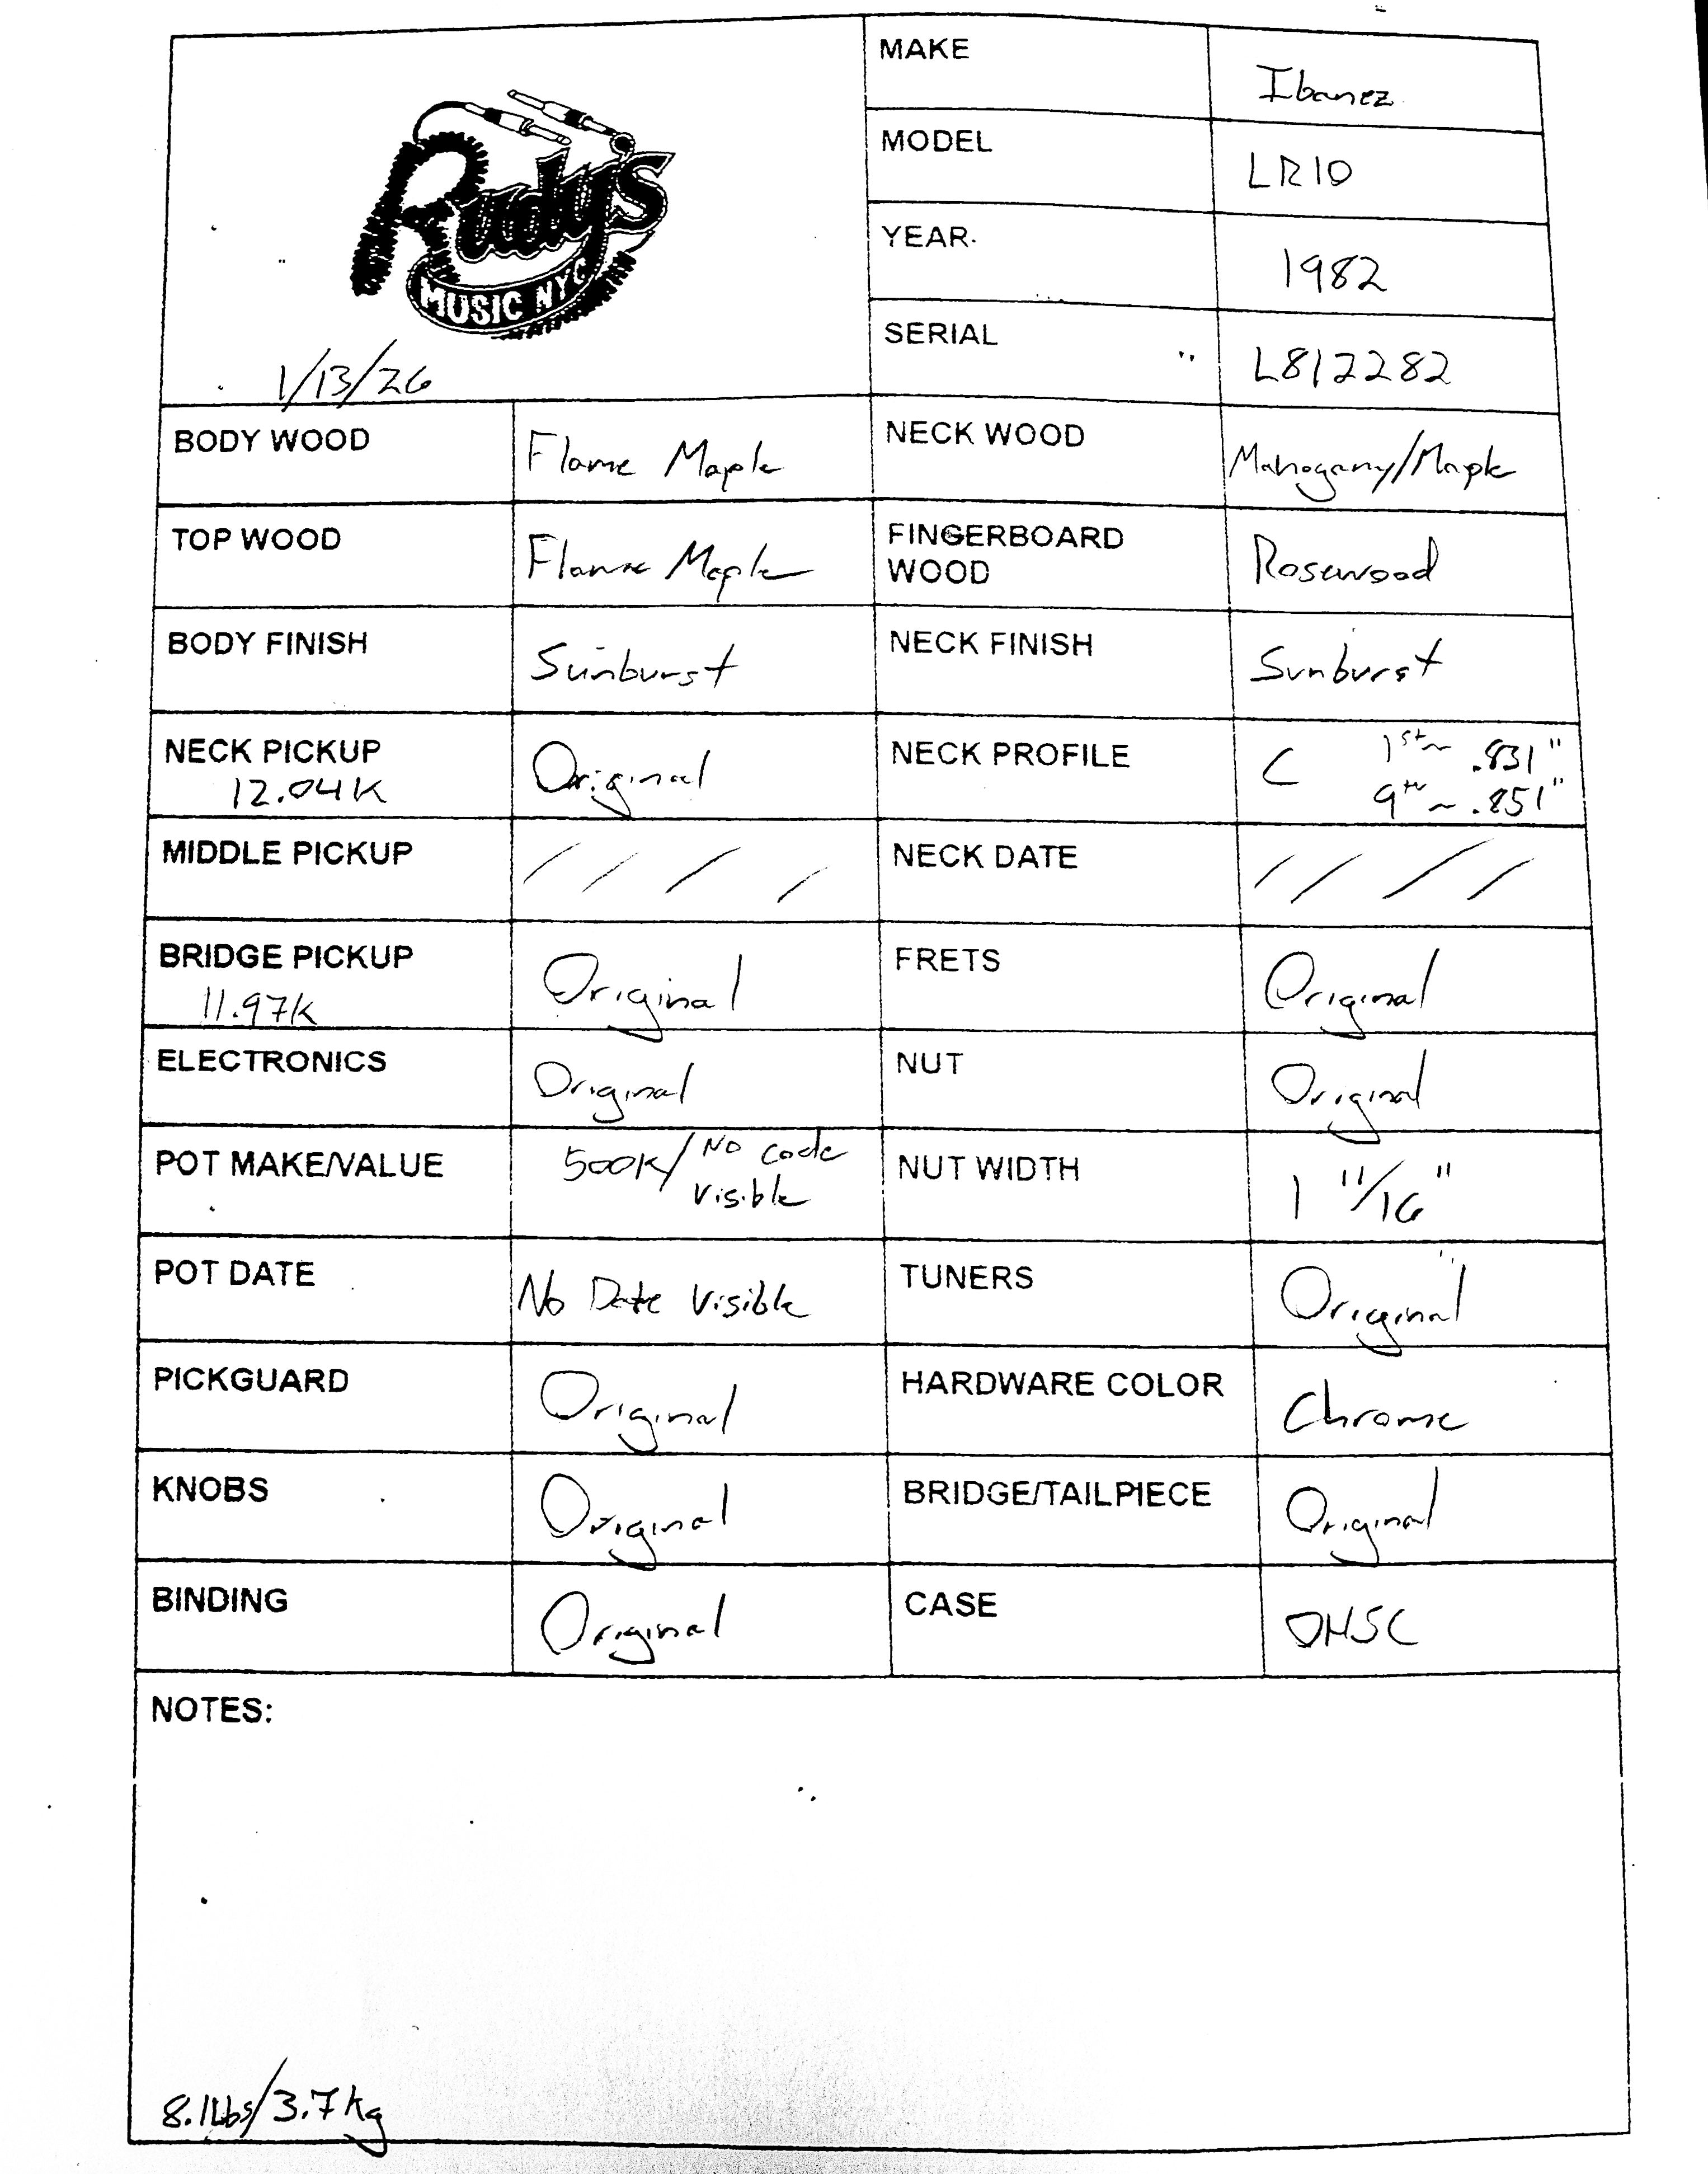 Rudy's
MUSIC NYC
1/13/26
MAKE
Ibanez
MODEL
LR10
YEAR
1982
SERIAL
L812282
BODY WOOD
Flame Maple
NECK WOOD
Mahogany/Maple
TOP WOOD
Flame Maple
FINGERBOARD
WOOD
Rosewood
BODY FINISH
Sunburst
NECK FINISH
Sunburst
NECK PICKUP
12.04K
Original
NECK PROFILE
C
1st ~ .831"
9th ~ .851"
MIDDLE PICKUP
/ / / /
NECK DATE
/ / / /
BRIDGE PICKUP
11.97K
Original
FRETS
Original
ELECTRONICS
Original
NUT
Original
POT MAKE/VALUE
500K/No Code
Visible
NUT WIDTH
1 11/16"
POT DATE
No Date Visible
TUNERS
Original
PICKGUARD
Original
HARDWARE COLOR
Chrome
KNOBS
Original
BRIDGE/TAILPIECE
Original
BINDING
Original
CASE
OHSC
NOTES:
8.1Lbs/3.7kg